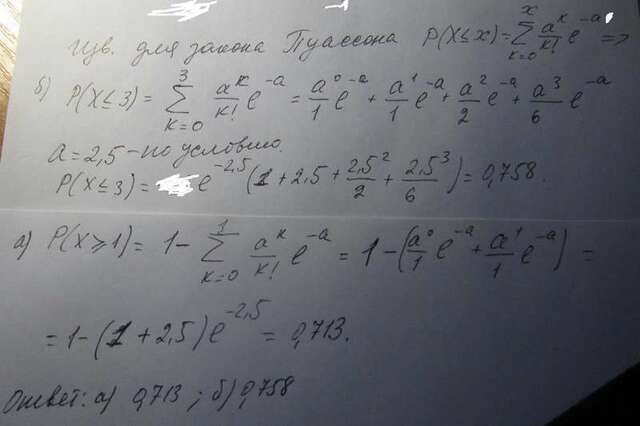 изв. для закона Пуассона P(X≤x)=∑_{k=0}^{x} a^k/k! e^{-a} =>
б) P(X≤3) = ∑_{k=0}^{3} a^k/k! e^{-a} = a^0/1 e^{-a} + a^1/1 e^{-a} + a^2/2 e^{-a} + a^3/6 e^{-a}
a=2,5 - по условию.
P(X≤3) = e^{-2,5} (1+2,5+2,5^2/2+2,5^3/6) = 0,758.
а) P(X≥1) = 1-∑_{k=0}^{1} a^k/k! e^{-a} = 1-(a^0/1 e^{-a} + a^1/1 e^{-a}) =
=1-(1+2,5)e^{-2,5} = 0,713.
Ответ: а) 0,713; б) 0,758